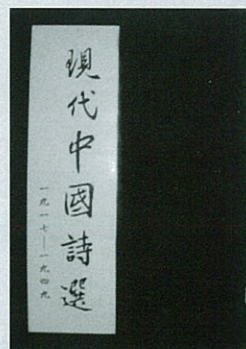 現代中國詩選
一九一七—一九四九